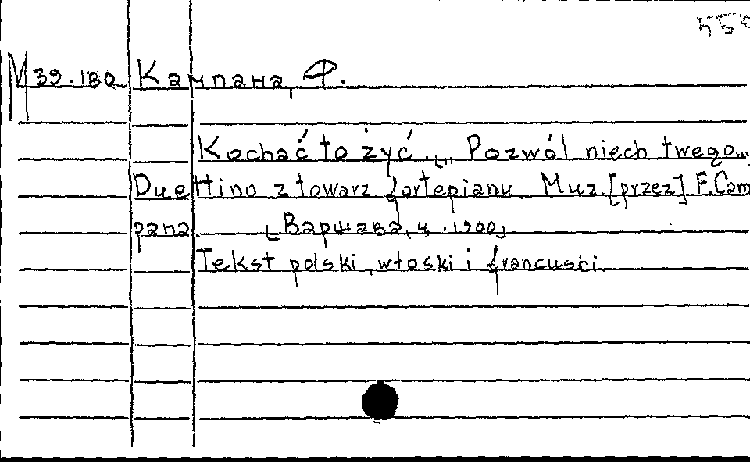 M 39.180 Кампана, Ф.
Kochać to żyć... Pozwól niech twego...
Duettino z towarz fortepianu Muz. [przez] F. Cam
pana [Варшава, ч. 1900]
Tekst polski, włoski i francusci.